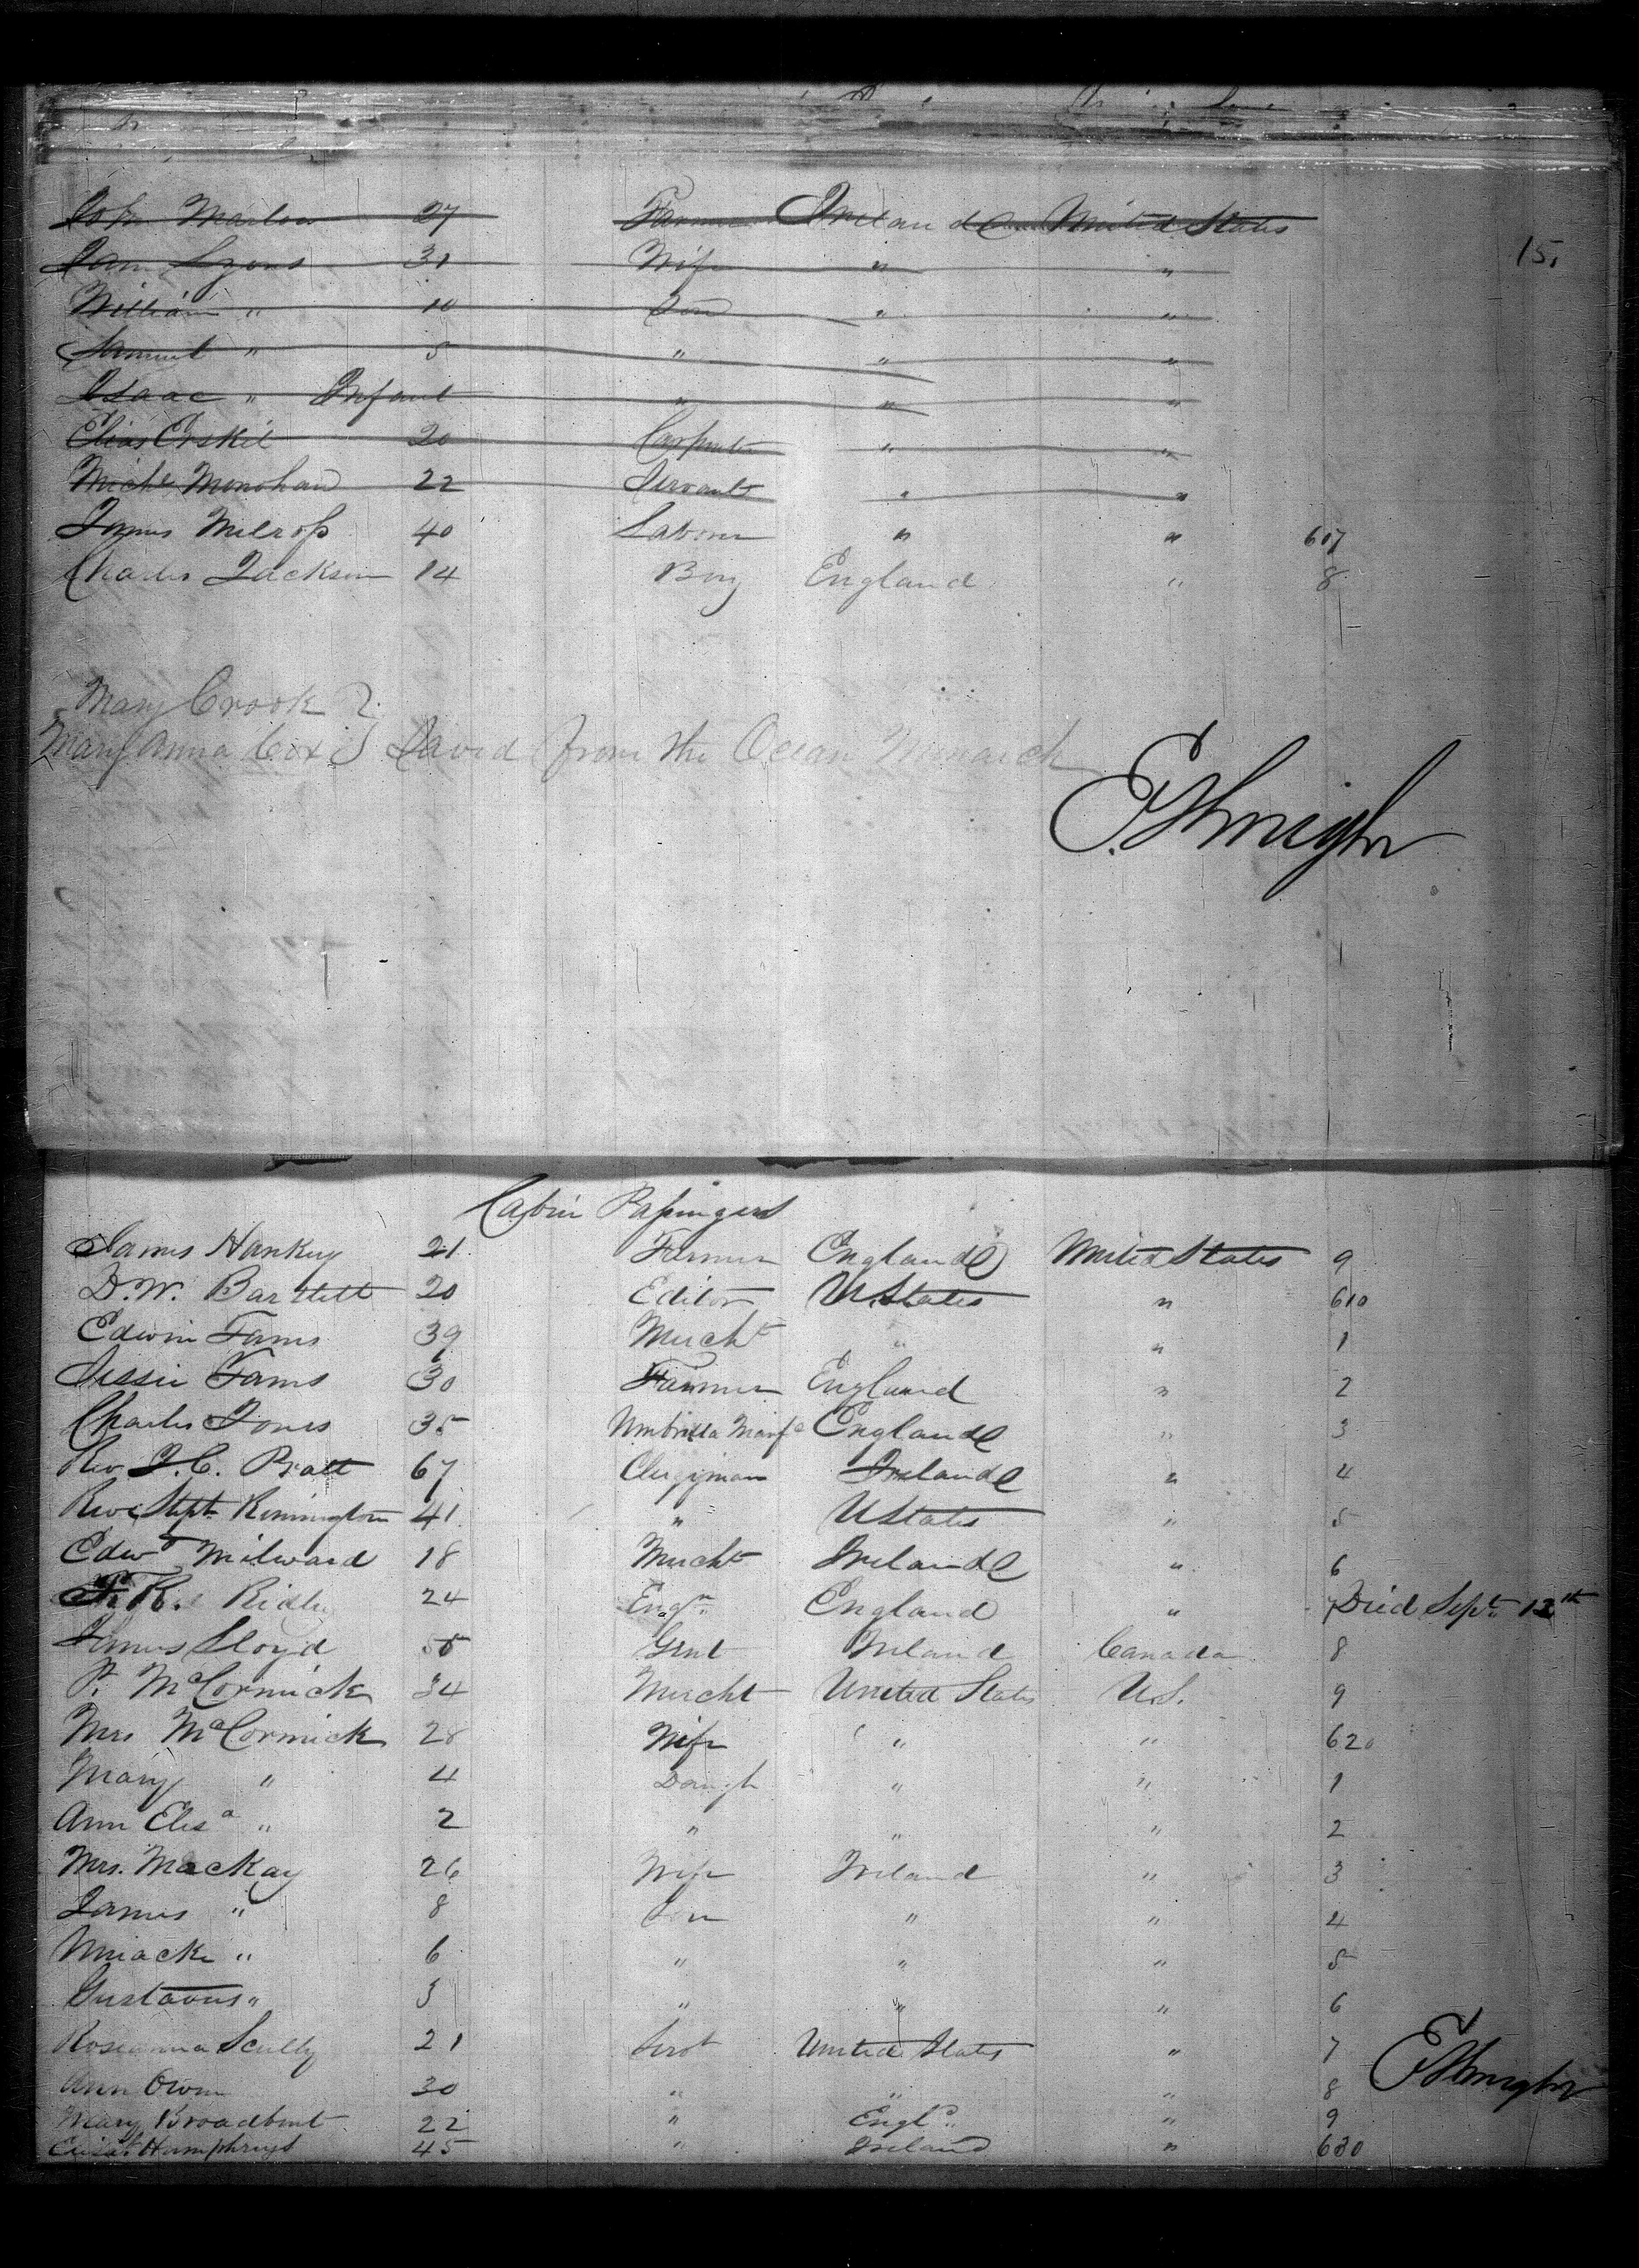 John Marlow 27 Farmer Ireland United States
15.
Jam Lyons 31 Wife " "
William " 10 Son " "
Samuel " 5 " " "
Isaac " Infant " " "
Elias Erskil 20 Carpenter " "
Michl Monohan 22 Servant " "
James Melross 40 Laborer " " 607
Charles Jackson 14 Boy England " 8
Mary Crook }
Mary Anna Cox } Saved from the Ocean Monarch
Cabin Passingers
James Hankey 21 Farmer England United States 9
D.W. Bartlett 20 Editor U.States " 610
Edwin Fams 39 Mercht " " 1
Jessie Fams 30 Farmer England " 2
Charles Jones 35 Umbrilla Manfr England " 3
Rev J.C. Pratt 67 Clergyman Ireland " 4
Revd Steph Remington 41 " UStates " 5
Edwd Milward 18 Mercht Ireland " 6
Ridley 24 Engr England " 7 Died Sept 12th
James Lloyd 55 Gent Ireland Canada 8
P. McCormick 34 Mercht United States U.S. 9
Mrs McCormick 28 Wife " " 620
Mary " 4 Daugh " " 1
Ann Elisa " 2 " " " 2
Mrs. Mackay 26 Wife Ireland " 3
James " 8 Son " " 4
" 6 " " " 5
Gustavus " 3 " " " 6
Roseanna Scully 21 Servt United States " 7
Ann Owen 30 " " " 8
Mary Broadbent 22 " Engld " 9
Elizabt Humphrys 45 " Ireland " 630